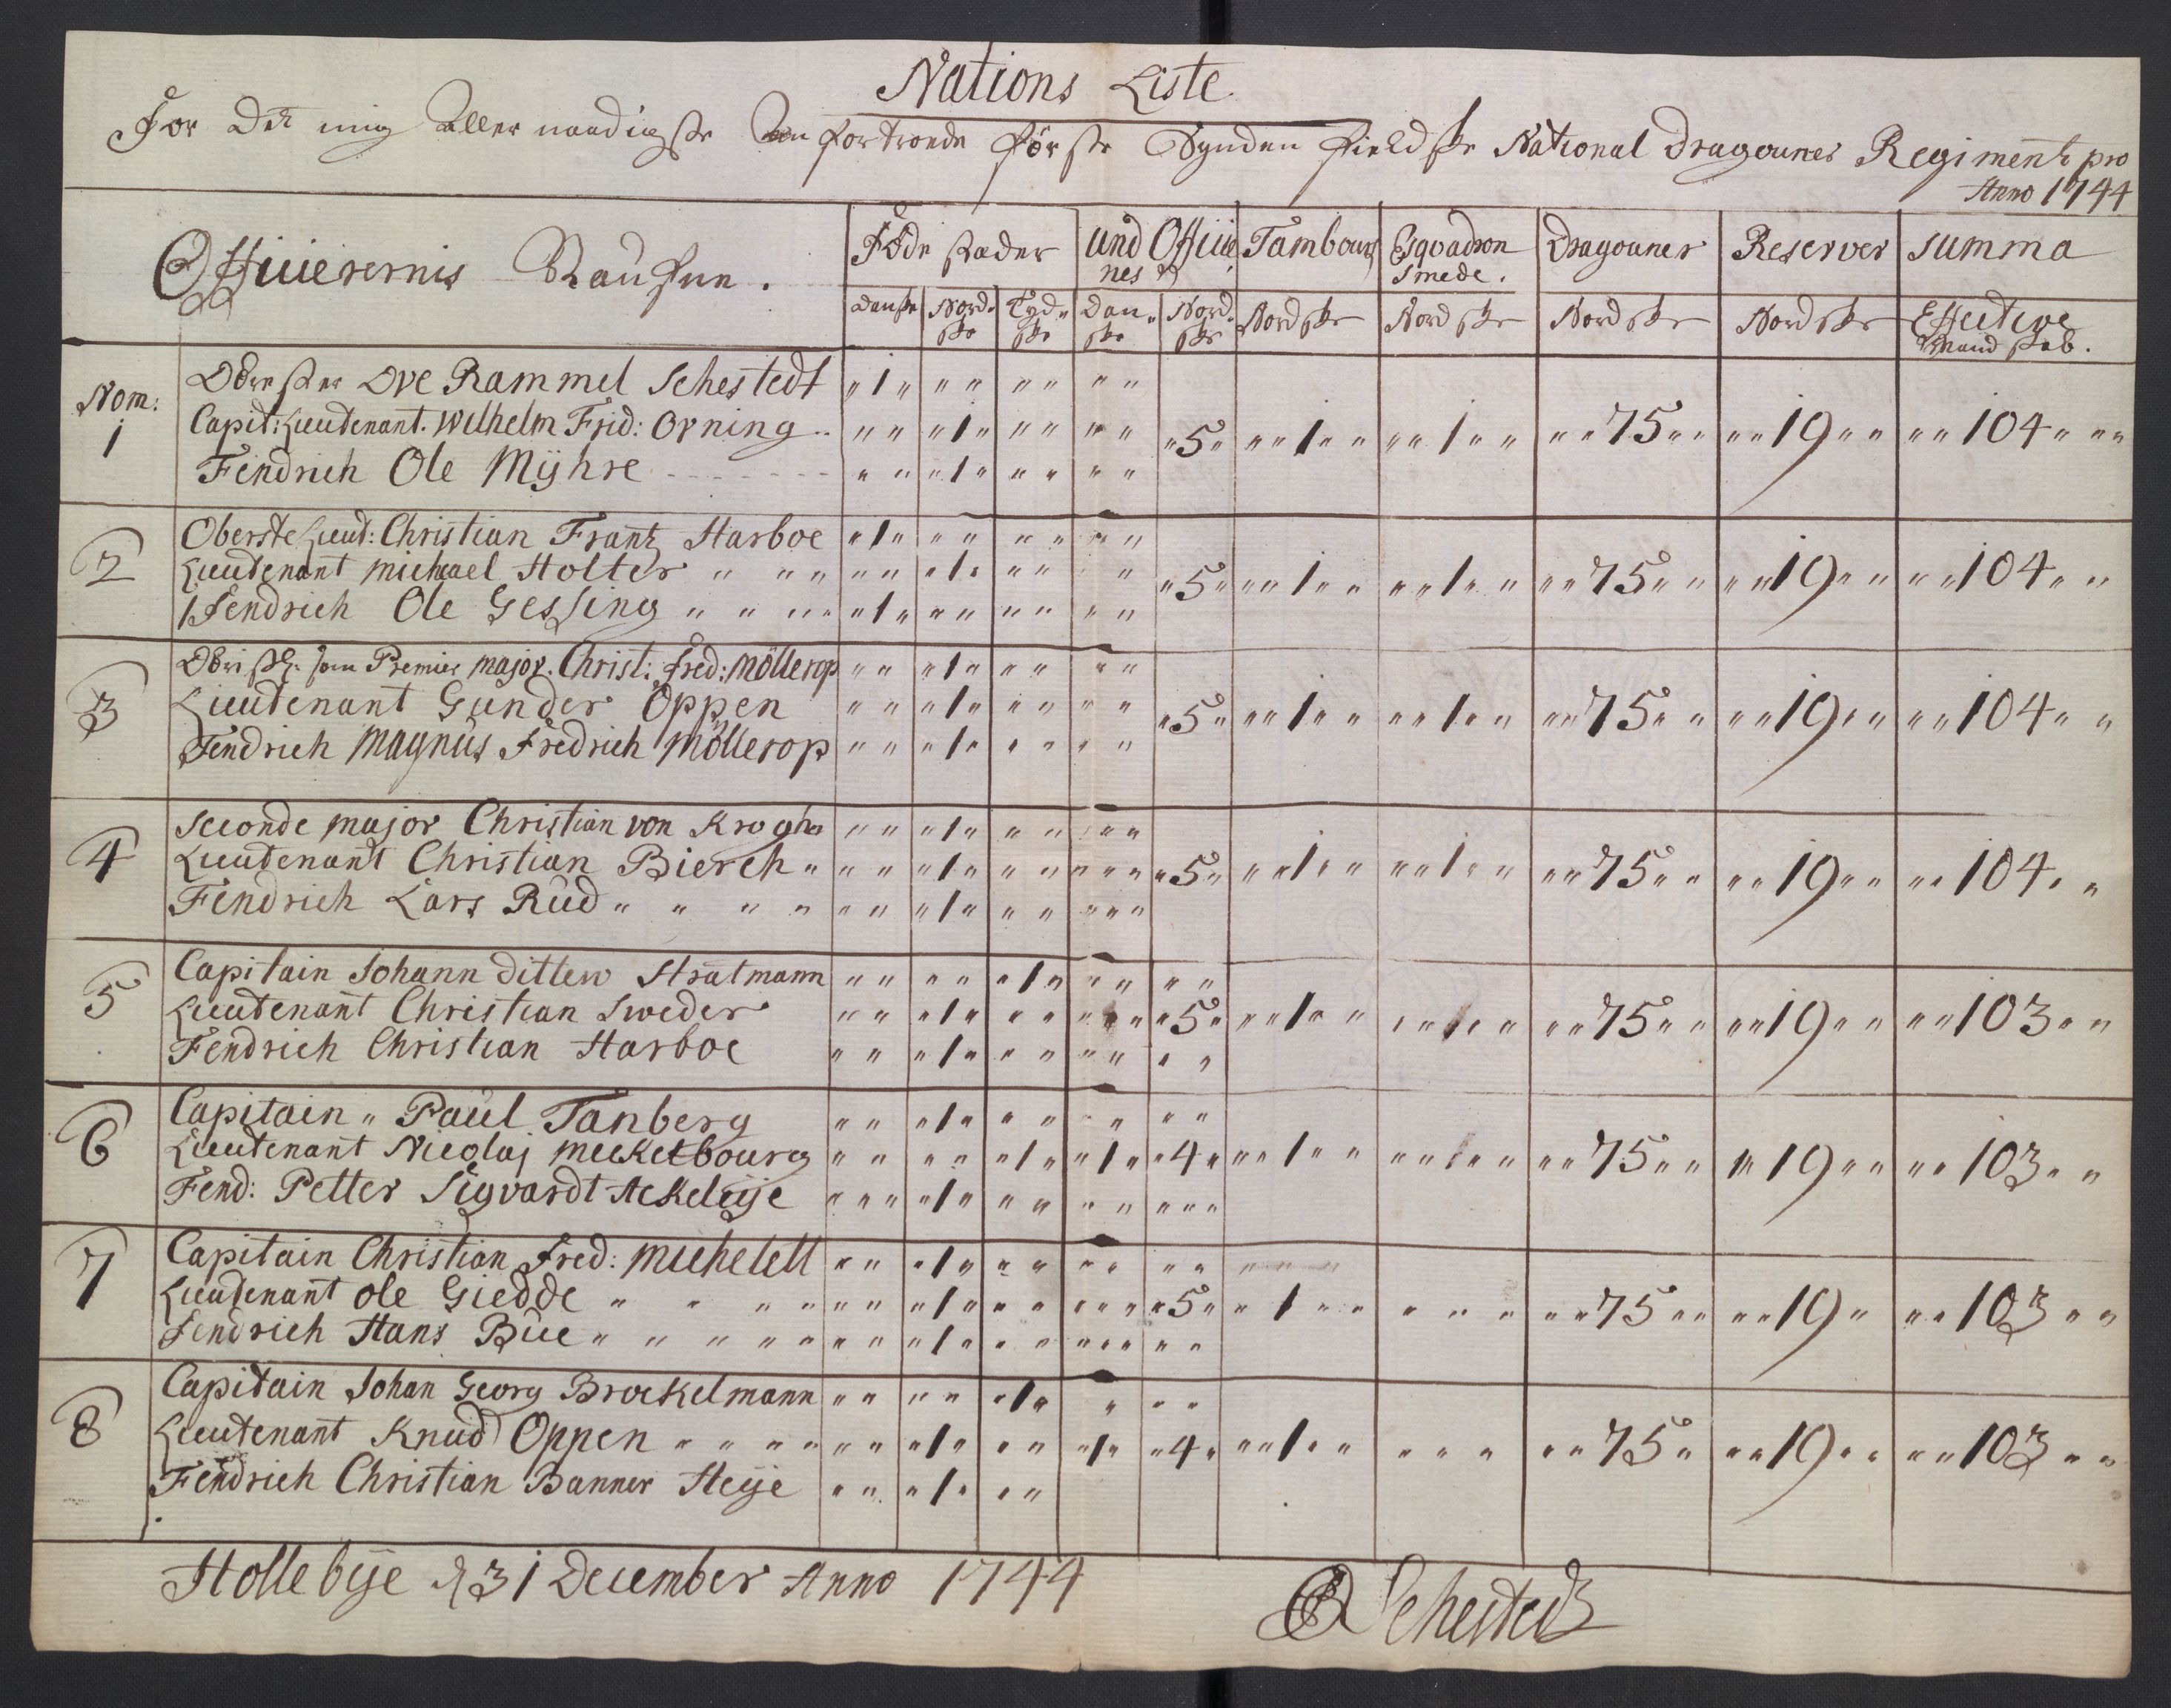 Nations Liste
For Det mig Aller naadigste An fortroede förste Synden fieldske National Dragouner Regiment pro
Anno 1744
Officerernis Naufne. Föde stæder Und Officer Tambours Esqvadron Dragouner Reserver Summa
nes Smede.
Danske Nord- Tyd- Dan- Nord- Nordske Nordske Nordske Nordske Effective
ske ske ske ske Mandskab.
Nom: Obrister Ove Rammel Sehestedt " 1 " " " " " " "
1 Capit: Lieutenant. Wilhelm Frid: Orning .. " " " 1 " " " " " " 5 " " " 1 " " " " 1 " " " " 75 " " " " 19 " " " " 104 " " "
Fendrich Ole Mÿhre - - - - - " " " 1 " " " " "
Oberste Lieut: Christian Frantz Harboe " 1 " " " " " " "
2 Lieutenant Michael Holter " " " " " " 1 " " " " " 5 " " " 1 " " " " 1 " " " " 75 " " " " 19 " " " " 104 " "
1 Fendrich Ole Gessing " " " " " 1 " " " " " " "
Obristl: som Premier Major. Christ: Fred: Möllerop " " " 1 " " " " "
3 Lieutenant Gunder Oppen " " " 1 " " " " " " 5 " " " 1 " " " " 1 " " " " 75 " " " " 19 " " " " 104 " "
Fendrich Magnus Fredrich Möllerop " " " 1 " " " " "
Seconde Major Christian von Krogh " " " 1 " " " " " "
4 Lieutenant Christian Bierch " " " " 1 " " " " " " " 5 " " " 1 " " " " 1 " " " " 75 " " " " 19 " " " " 104 " "
Fendrich Lars Rud " " " " " " " 1 " " " " " "
Capitain Johann Ditlew Stratmann " " " " " 1 " " " " "
5 Lieutenant Christian Sweder " " " 1 " " " " " " " 5 " " " 1 " " " " 1 " " " " 75 " " " " 19 " " " " 103 " "
Fendrich Christian Harboe " " " 1 " " " " " " "
Capitain " Paul Tanberg " " " 1 " " " " " "
6 Lieutenant Nicolaj Meckelbourg " " " " " 1 " " 1 " " 4 " " " 1 " " " " 1 " " " " 75 " " " 19 " " " " 103 " "
Fend: Petter Sigvardt Ackeleÿe " " " " 1 " " " " " " " "
Capitain Christian Fred: Michelett " " " 1 " " " " " " " " " " "
7 Lieutenant Ole Giedde " " " " " " " 1 " " " " " " " 5 " " 1 " " " " " " " 75 " " " " 19 " " " 103 " "
Fendrich Hans Bue " " " " " " " " 1 " " " " " " " "
Capitain Johan Georg Brockelmann " " " " " 1 " " " "
8 Lieutenant Knud Oppen " " " " " " " 1 " " " " 1 " " 4 " " " 1 " " " " " " " 75 " " " 19 " " " " 103 " "
Fendrich Christian Banner Heÿe " " " 1 " " "
Hollebÿe d 31 December Anno 1744
OR Sehestedt